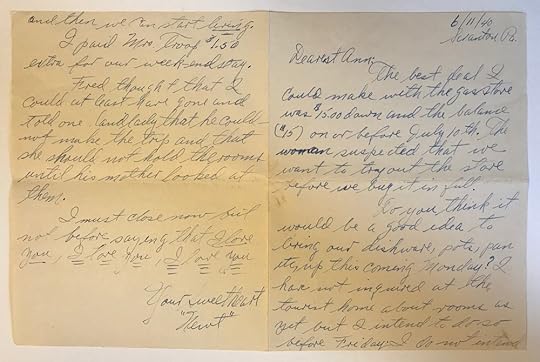 6/11/40
Scranton Pa.
Dearest Ann:
The best deal I
could make with the gas stove
was $15.00 down and the balance
($15) on or before July 10th. The
woman suspected that we
want to try out the stove
before we buy it in full.
Do you think it
would be a good idea to
bring our dishware, pots, pan
etc, up this coming Monday? I
have not inquired at the
tourist home about rooms as
yet but I intend to do so
before Friday. I do not intend
and then we can start living.
I paid Mrs. $1.50
extra for our week-end stay.
Fred thought that I
could at least have gone and
told one landlady that he could
not make the trip and that
she should not hold the rooms
until his mother looked at
them.
I must close now but
not before saying that I love
you, I love you, I love you
Your sweetheart
"Newt"